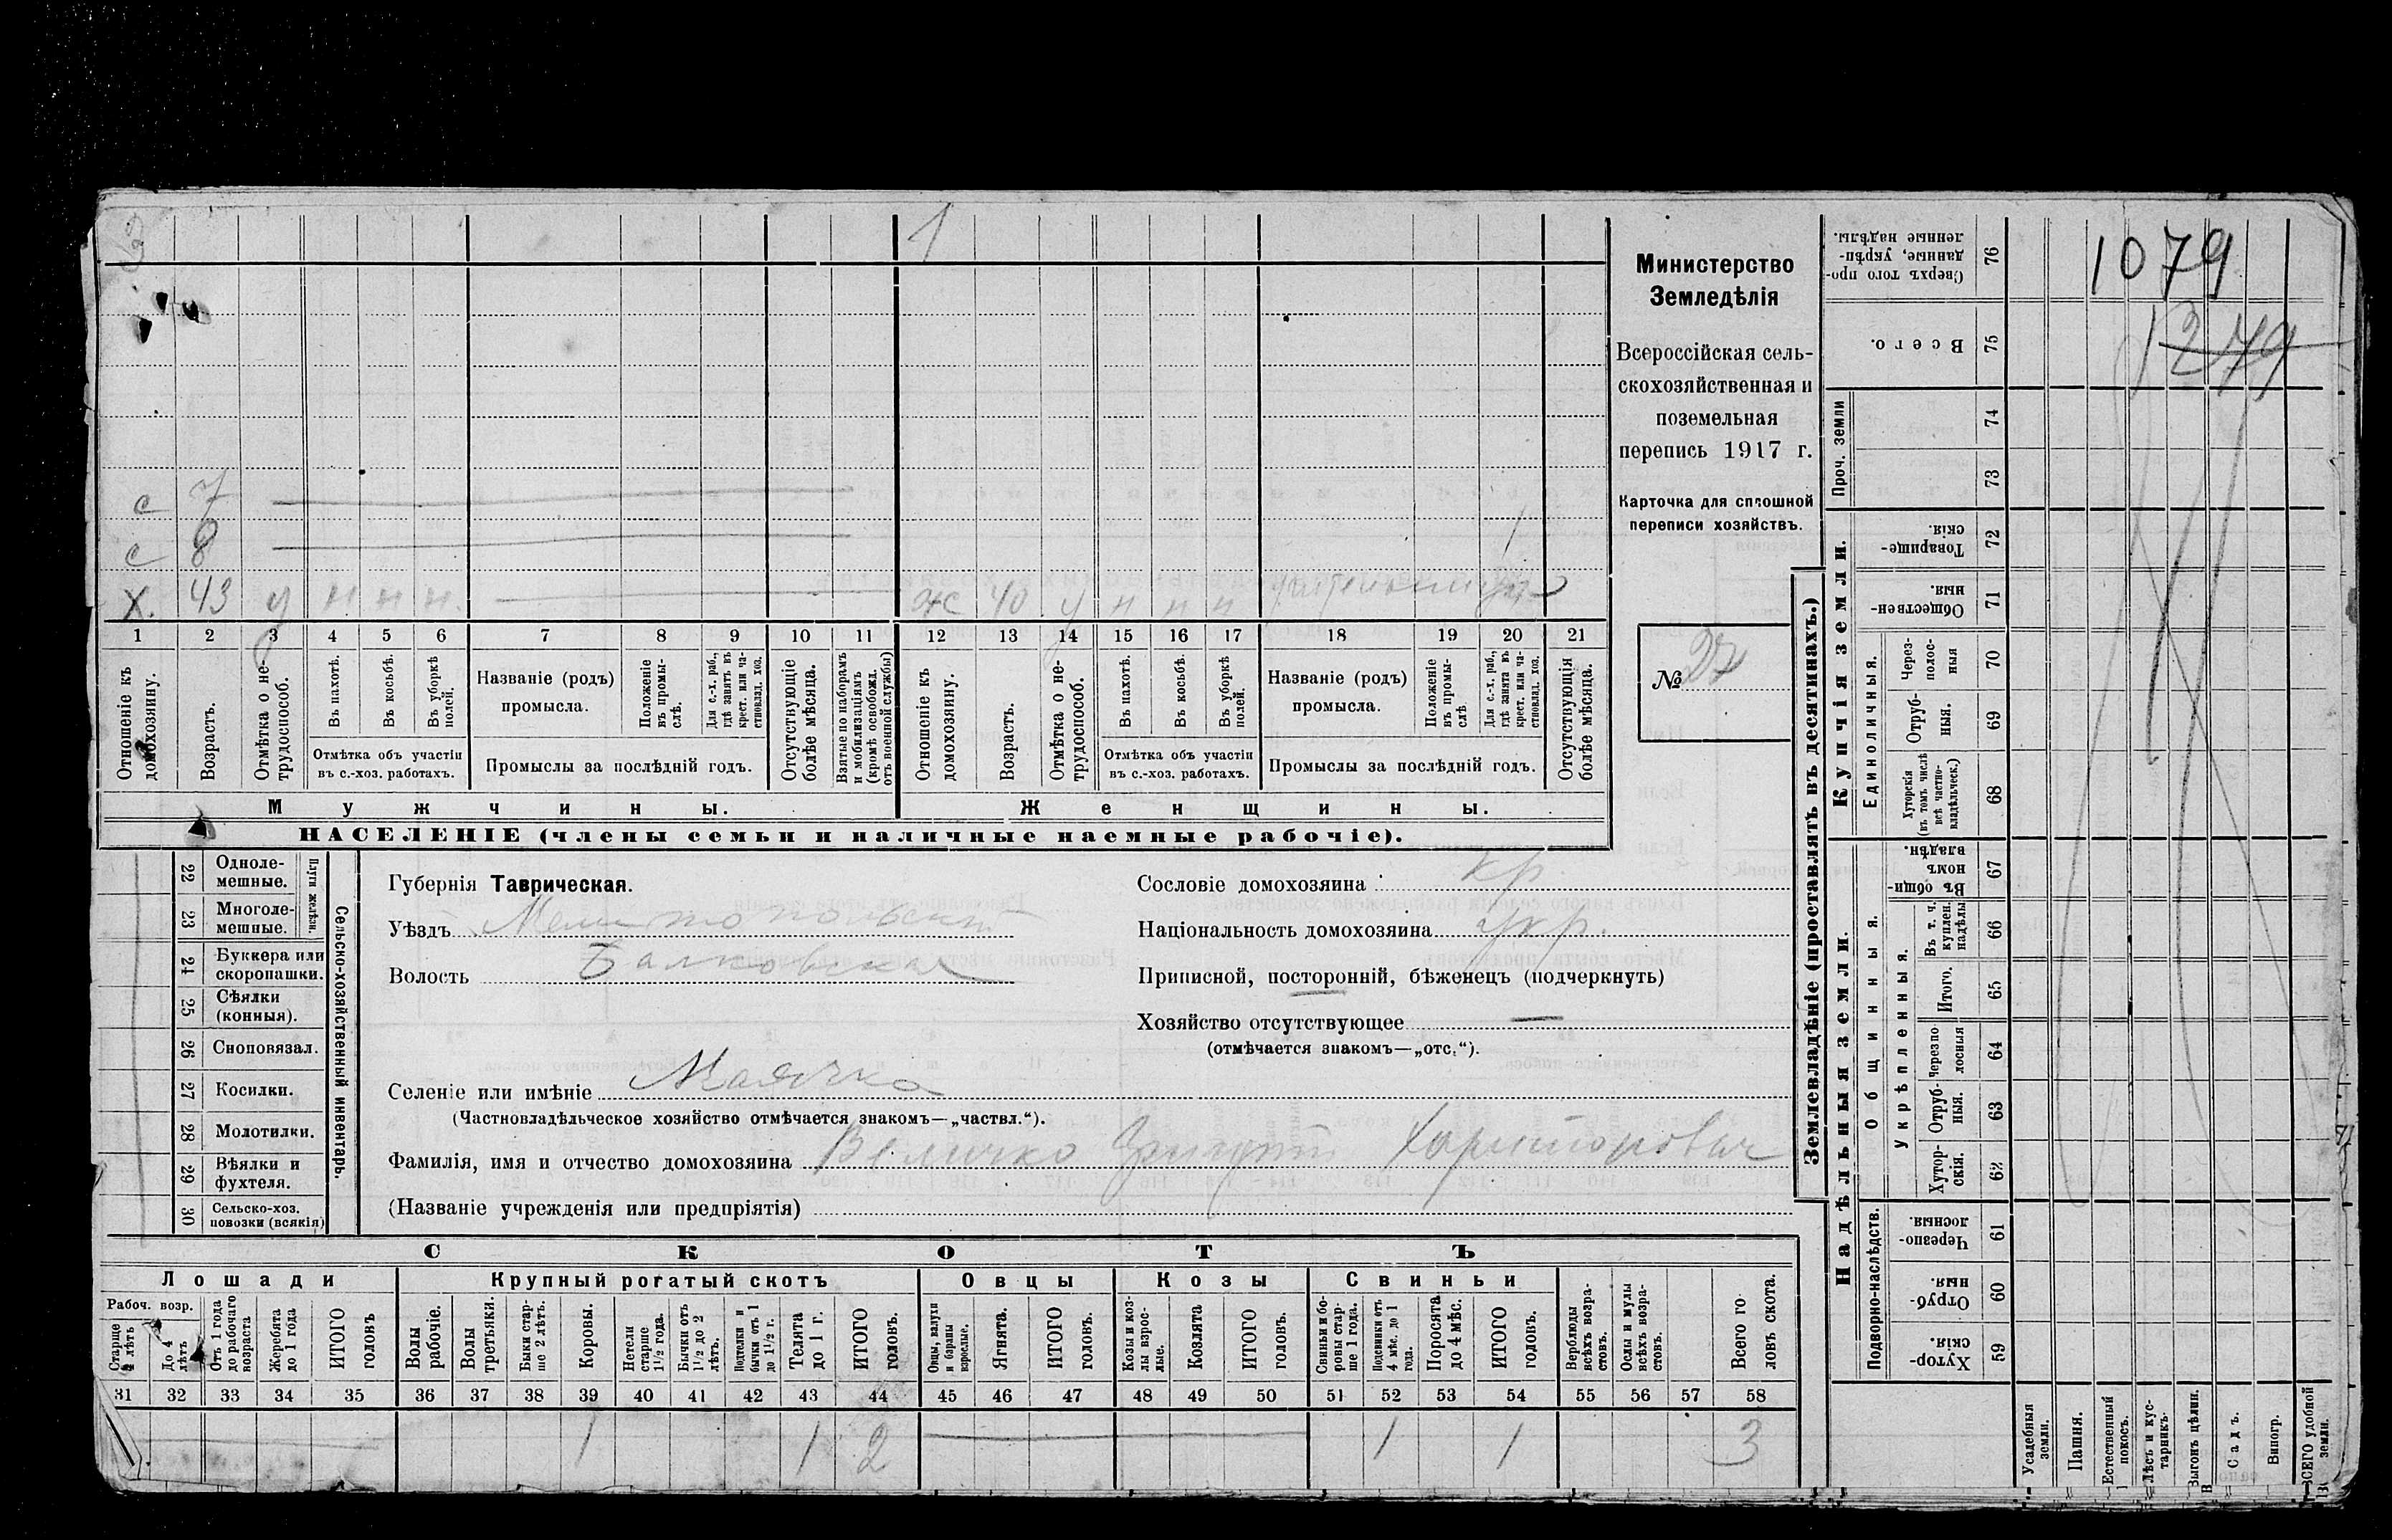 3
1
с 7
с 8
1
Х. 43 у н н н. ж 40 у н н н
1 2 3 4 5 6 7 8 9 10 11 12 13 14 15 16 17 18 19 20 21
Отношеніе къ домохозяину.
Возрастъ.
Отмѣтка о нетрудоспособ.
Въ пахотѣ.
Въ косьбѣ.
Въ уборкѣ полей.
Отмѣтка объ участіи
въ с.-хоз. работахъ.
Названіе (родъ)
промысла.
Положеніе въ промыслѣ.
Для с.-х. раб., гдѣ занятъ въ крест. или частновлад. хоз.
Промыслы за послѣдній годъ.
Отсутствующіе болѣе мѣсяца.
Взятые по наборамъ и мобилизаціямъ (кромѣ освобожд. отъ военной службы)
Отношеніе къ домохозяину.
Возрастъ.
Отмѣтка о нетрудоспособ.
Въ пахотѣ.
Въ косьбѣ.
Въ уборкѣ полей.
Отмѣтка объ участіи
въ с.-хоз. работахъ.
Названіе (родъ)
промысла.
Положеніе въ промыслѣ
Для с.-х. раб., гдѣ занята въ крест. или частновлад. хоз.
Промыслы за послѣдній годъ.
Отсутствующія болѣе мѣсяца.
Мужчины. Женщины.
НАСЕЛЕНІЕ (члены семьи и наличные наемные рабочіе).
Министерство
Земледѣлія
Всероссійская сель-
скохозяйственная и
поземельная
перепись 1917 г.
Карточка для сплошной
переписи хозяйствъ.
№ 27
22 Однолемешные.
23 Многолемешные.
Плуги желѣзн.
24 Буккера или скоропашки.
25 Сѣялки (конныя).
26 Сноповязал.
27 Косилки.
28 Молотилки.
29 Вѣялки и фухтеля.
30 Сельско-хоз. повозки (всякія)
Сельско-хозяйственный инвентарь.
Губернія Таврическая.
Уѣздъ Мелитопольскій
Волость Балковская
Селеніе или имѣніе Маячка
(Частновладѣльческое хозяйство отмѣчается знакомъ—„частвл.“).
Фамилія, имя и отчество домохозяина Величко Харитонович
(Названіе учрежденія или предпріятія)
Сословіе домохозяина кр.
Національность домохозяина укр.
Приписной, посторонній, бѣженецъ (подчеркнуть)
Хозяйство отсутствующее —
(отмѣчается знакомъ—„отс.“).
СКОТЪ
Лошади Крупный рогатый скотъ Овцы Козы Свиньи
Рабоч. возр.
Старше 4 лѣтъ
До 4 лѣтъ
Отъ 1 года до рабочаго возраста
Жеребята до 1 года
ИТОГО головъ
Волы рабочіе.
Волы третьяки.
Быки старше 2 лѣтъ.
Коровы.
Нетели старше 1½ года.
Бычки отъ 1½ до 2 лѣтъ.
Подтелки и бычки отъ 1 до 1½ г.
Телята до 1 г.
ИТОГО головъ.
Овцы, валухи и бараны взрослые.
Ягнята.
ИТОГО головъ.
Козы и козлы взрослые.
Козлята
ИТОГО головъ.
Свиньи и боровы старше 1 года.
Подсвинки отъ 4 мѣс. до 1 года.
Поросята до 4 мѣс.
ИТОГО головъ.
Верблюды всѣхъ возрастовъ.
Ослы и мулы всѣхъ возрастовъ.
Всего головъ скота.
31 32 33 34 35 36 37 38 39 40 41 42 43 44 45 46 47 48 49 50 51 52 53 54 55 56 57 58
1 1 2 1 1 3
Землевладѣніе (проставлять въ десятинахъ.)
1079
1279
Сверхъ того проданные, укрѣпленные надѣлы. 76
Всего. 75
Проч. земли
74
73
Купчія земли.
Товарищескія. 72
Общественныя. 71
Единоличныя.
Черезполосныя 70
Отрубныя. 69
Хуторскія (въ томъ числѣ всѣ частновладѣльческ.) 68
Надѣльныя земли.
Общинныя.
Въ общинномъ владѣн. 67
Укрѣпленныя.
Въ т. ч. куплен. надѣлы 66
Итого. 65
Черезполосныя 64
Отрубныя. 63
Хуторскія. 62
Подворно-наслѣдств.
Черезполосныя. 61
Отрубныя. 60
Хуторскія. 59
Усадебныя земли.
Пашня.
Естественный покосъ.
Лѣсъ и кустарникъ.
Выгонъ цѣлин.
Садъ.
Виногр.
ВСЕГО удобной земли.